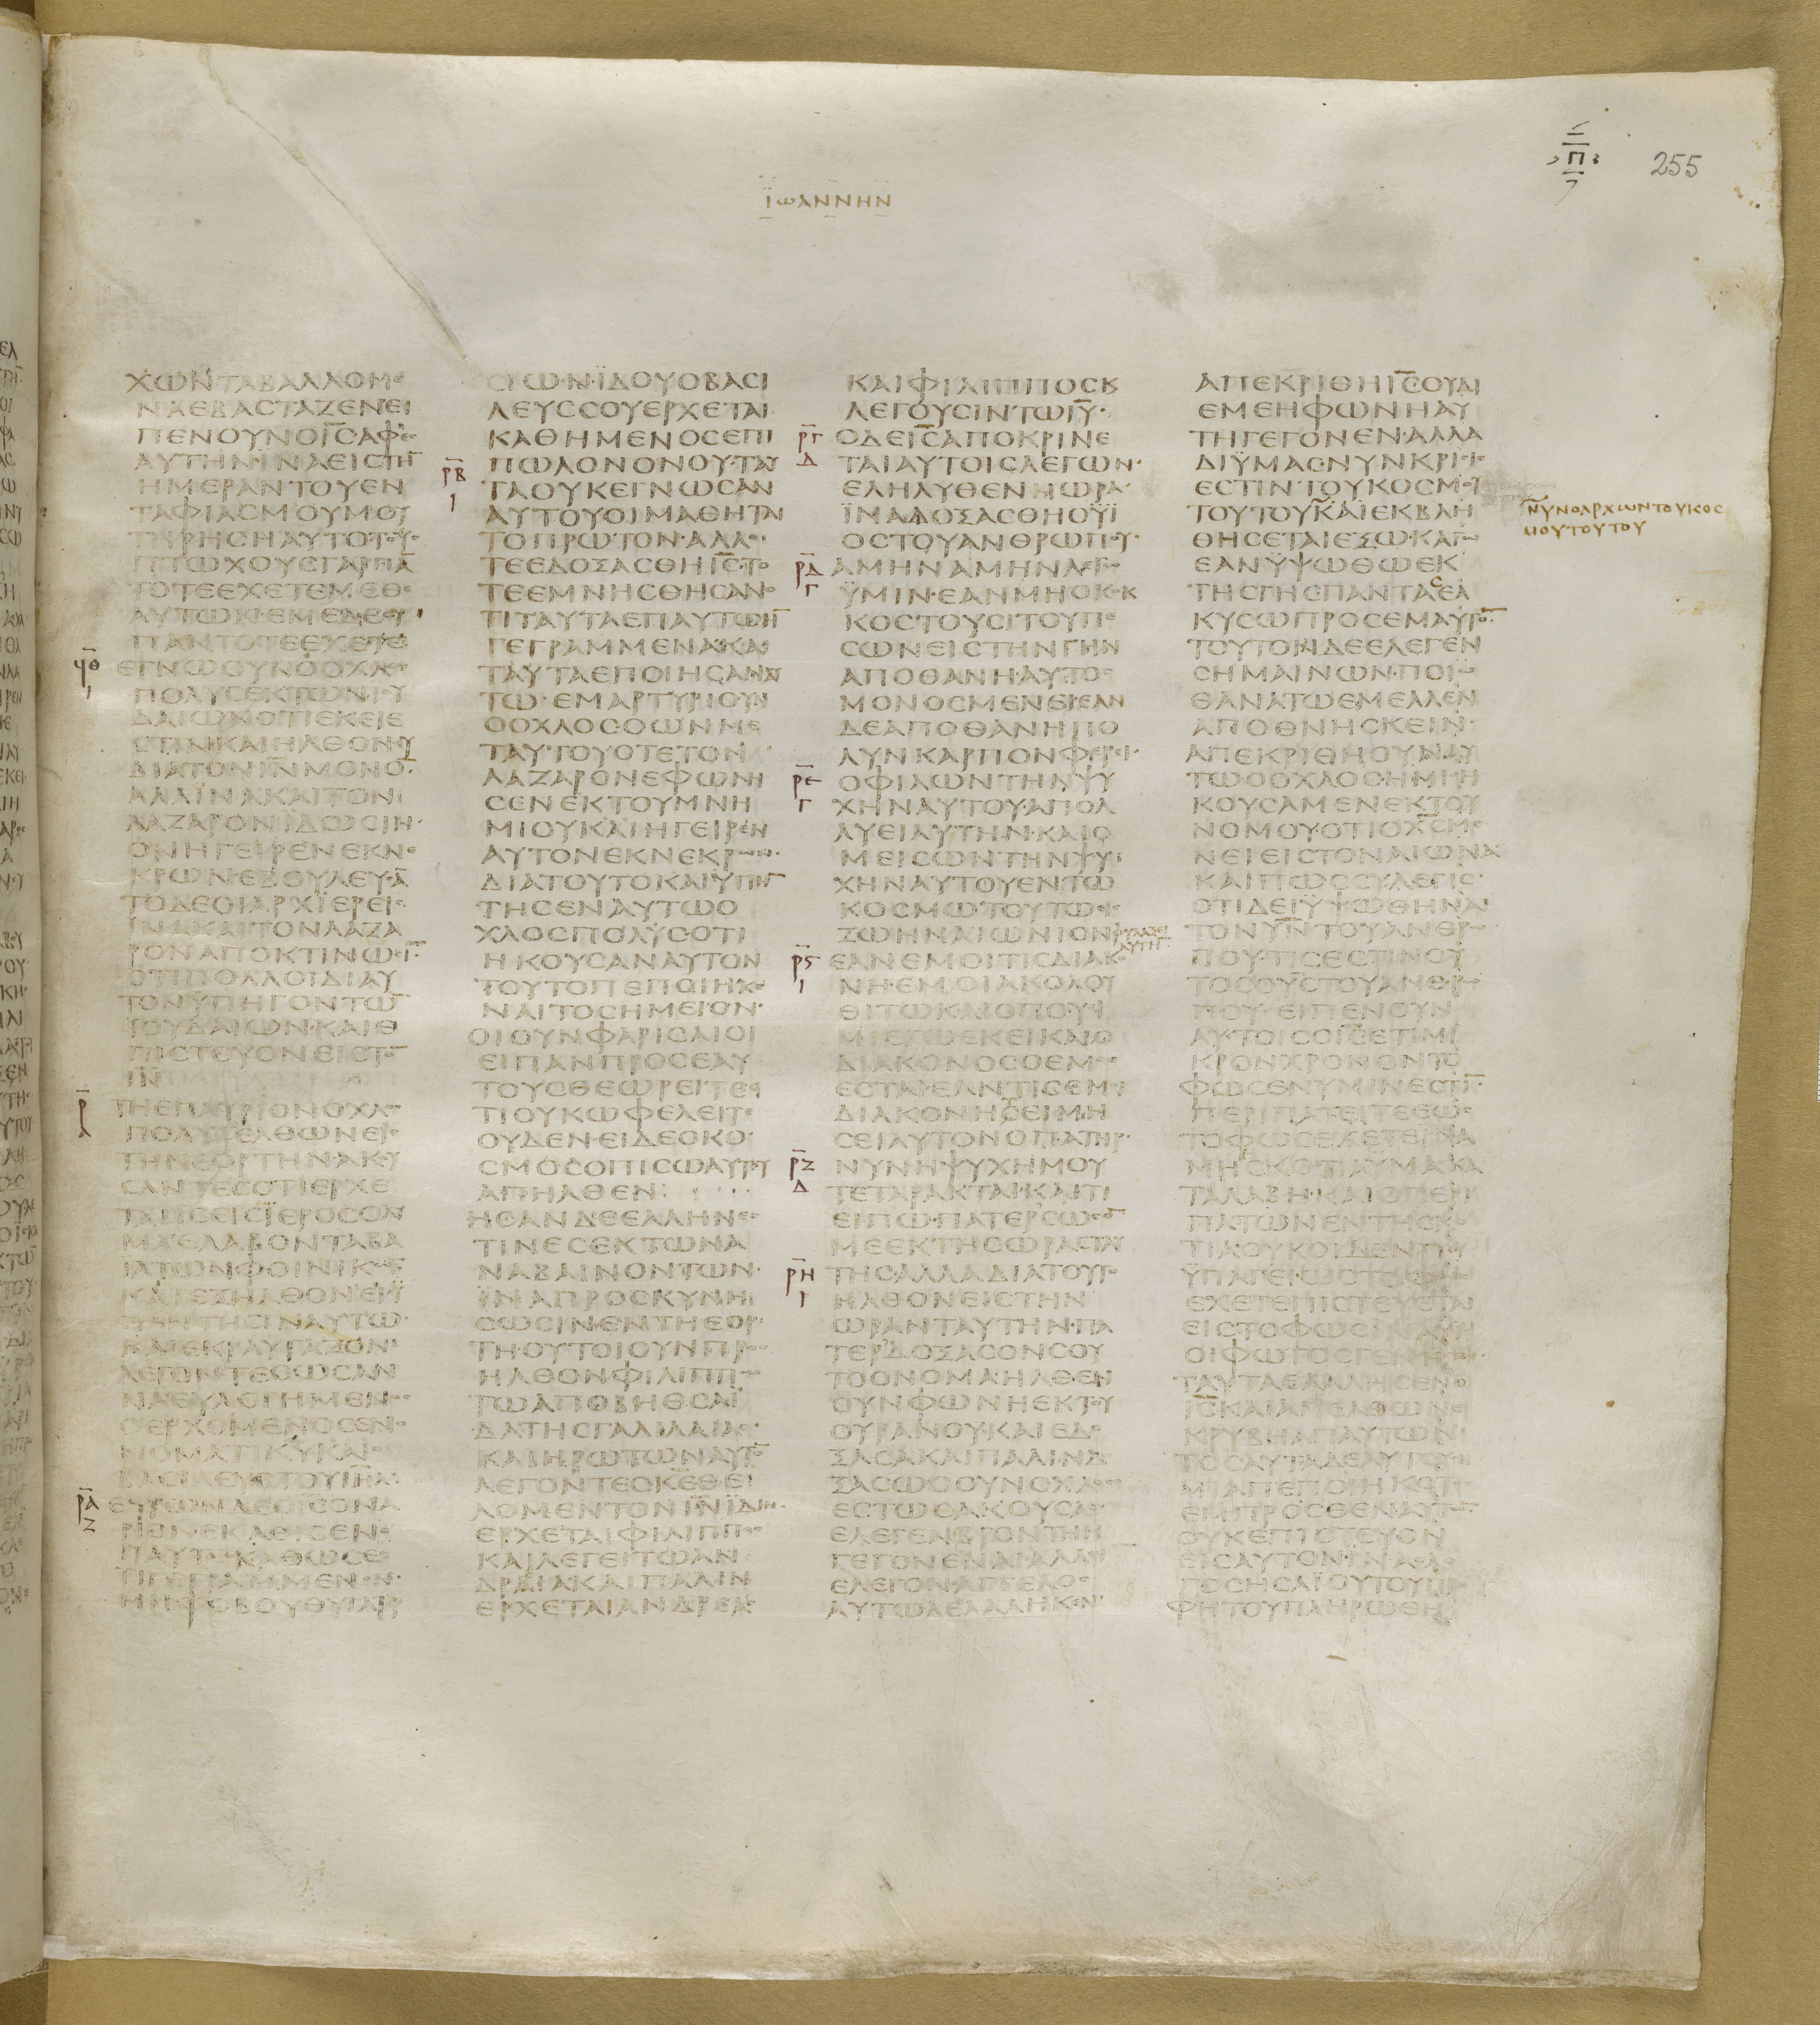 Π
255
ΪΩΑΝΝΗΝ
ΧΩΝ·ΤΑΒΑΛΛΟΜΕ
ΝΑΕΒΑΣΤΑΖΕΝ·ΕΙ
ΠΕΝΟΥΝΟΙ̅Σ̅ΑΦΕΣ
ΑΥΤΗΝΪΝΑΕΙΣΤΗ̅
ΗΜΕΡΑΝΤΟΥΕΝ
ΤΑΦΙΑΣΜΟΥΜΟΥ
ΤΗΡΗΣΗΑΥΤΟΤΟΥΣ
ΠΤΩΧΟΥΣΓΑΡΠΑ̅
ΤΟΤΕΕΧΕΤΕΜΕΘΕ
ΑΥΤΩΝ·ΕΜΕΔΕΟΥ
ΠΑΝΤΟΤΕΕΧΕΤΕ
Ϟ̅Θ̅
Ι
ΕΓΝΩΟΥΝΟΟΧΛΟΣ
ΠΟΛΥΣΕΚΤΩΝΙΟΥ
ΔΑΙΩΝΟΤΙΕΚΕΙΕ
ΣΤΙΝΚΑΙΗΛΘΟΝΟΥ
ΔΙΑΤΟΝΙ̅Ν̅ΜΟΝΟ̅
ΑΛΛΪΝΑΚΑΙΤΟΝ
ΛΑΖΑΡΟΝΪΔΩΣΙΝ·
ΟΝΗΓΕΙΡΕΝΕΚΝΕ
ΚΡΩΝ·ΕΒΟΥΛΕΥΣΑ̅
ΤΟΔΕΟΙΑΡΧΙΕΡΕΙΣ
ΪΝΑΚΑΙΤΟΝΛΑΖΑ
ΡΟΝΑΠΟΚΤΙΝΩΣΙ̅·
ΟΤΙΠΟΛΛΟΙΔΙΑΥ
ΤΟΝΫΠΗΓΟΝΤΩ̅
ΪΟΥΔΑΙΩΝ·ΚΑΙΕ
ΠΙΣΤΕΥΟΝΕΙΣΤΟ̅
Ι̅Ν̅
Ρ̅
Α
ΤΗΕΠΑΥΡΙΟΝΟΧΛΟΣ
ΠΟΛΥΣΕΛΘΩΝΕΙΣ
ΤΗΝΕΟΡΤΗΝ·ΑΚΟΥ
ΣΑΝΤΕΣΟΤΙΕΡΧΕ
ΤΑΙΙΣΕΙΣΪΕΡΟΣΟΛΥ
ΜΑ·ΕΛΑΒΟΝΤΑΒΑ
ΪΑΤΩΝΦΟΙΝΙΚΩ̅
ΚΑΙΕΞΗΛΘΟΝΕΙΣΫ
ΠΑΝΤΗΣΙΝΑΥΤΩ·
ΚΑΙΕΚΡΑΥΓΑΖΟΝ
ΛΕΓΟΝΤΕΣΩΣΑΝ
ΝΑΕΥΛΟΓΗΜΕΝΟΣ
ΟΕΡΧΟΜΕΝΟΣΕΝΟ
ΝΟΜΑΤΙΚ̅Υ̅ΚΑΙΟ
ΒΑΣΙΛΕΥΣΤΟΥΙ̅Η̅Λ̅
Ρ̅Α̅
Ζ
ΕΥΡΩΝΔΕΟΙ̅Σ̅ΟΝΑ
ΡΙΟΝΕΚΑΘΙΣΕΝ
ΕΠΑΥΤΟΚΑΘΩΣΕ
ΤΙΓΕΓΡΑΜΜΕΝΟΝ·
ΜΗΦΟΒΟΥΘΥΓΑΤΗΡ
ΣΙΩΝ·ΪΔΟΥΟΒΑΣΙ
ΛΕΥΣΣΟΥΕΡΧΕΤΑΙ
ΚΑΘΗΜΕΝΟΣΕΠΙ
Ρ̅Β̅
Ι
ΠΩΛΟΝΟΝΟΥ·ΤΑΥ
ΤΑΟΥΚΕΓΝΩΣΑΝ
ΑΥΤΟΥΟΙΜΑΘΗΤΑΙ
ΤΟΠΡΩΤΟΝ·ΑΛΛΟ
ΤΕΕΔΟΞΑΣΘΗΙ̅Σ̅·ΤΟ
ΤΕΕΜΝΗΣΘΗΣΑΝΟ
ΤΙΤΑΥΤΑΕΠΑΥΤΩΗ̅
ΓΕΓΡΑΜΜΕΝΑΚΑΙ
ΤΑΥΤΑΕΠΟΙΗΣΑΝΑΥ
ΤΩ·ΕΜΑΡΤΥΡΙΟΥΝ
ΟΟΧΛΟΣΟΩΝΜΕ
ΤΑΥΤΟΥΟΤΕΤΟΝ
ΛΑΖΑΡΟΝΕΦΩΝΗ
ΣΕΝΕΚΤΟΥΜΝΗ
ΜΙΟΥΚΑΙΗΓΕΙΡΕΝ
ΑΥΤΟΝΕΚΝΕΚΡΩΝ·
ΔΙΑΤΟΥΤΟΚΑΙΫΠΗ̅
ΤΗΣΕΝΑΥΤΩΟ
ΧΛΟΣΠΟΛΥΣΟΤΙ
ΗΚΟΥΣΑΝΑΥΤΟΝ
ΤΟΥΤΟΠΕΠΟΙΗΚΕ
ΝΑΙΤΟΣΗΜΕΙΟΝ·
ΟΙΟΥΝΦΑΡΙΣΑΙΟΙ
ΕΙΠΑΝΠΡΟΣΕΑΥ
ΤΟΥΣΘΕΩΡΕΙΤΕΟ
ΤΙΟΥΚΩΦΕΛΕΙΤΕ
ΟΥΔΕΝ·ΕΙΔΕΟΚΟ
ΣΜΟΣΟΠΙΣΩΑΥΤΟΥ
ΑΠΗΛΘΕΝ
ΗΣΑΝΔΕΕΛΛΗΝΕΣ
ΤΙΝΕΣΕΚΤΩΝΑ
ΝΑΒΑΙΝΟΝΤΩΝ·
ΪΝΑΠΡΟΣΚΥΝΗ
ΣΩΣΙΝ·ΕΝΤΗΕΟΡ
ΤΗ·ΟΥΤΟΙΟΥΝΠΡΟΣ
ΗΛΘΟΝΦΙΛΙΠΠΩ
ΤΩΑΠΟΒΗΘΣΑΪ
ΔΑΤΗΣΓΑΛΙΛΑΙΑΣ·
ΚΑΙΗΡΩΤΩΝΑΥΤΟ̅
ΛΕΓΟΝΤΕΣΚ̅Ε̅ΘΕ
ΛΟΜΕΝΤΟΝΙ̅Ν̅ΪΔΙΝ·
ΕΡΧΕΤΑΙΦΙΛΙΠΠΟΣ
ΚΑΙΛΕΓΕΙΤΩΑΝ
ΔΡΕΑΚΑΙΠΑΛΙΝ
ΕΡΧΕΤΑΙΑΝΔΡΕΑΣ
ΚΑΙΦΙΛΙΠΠΟΣΚ
ΛΕΓΟΥΣΙΝΤΩΙ̅Υ̅·
Ρ̅Γ̅
Δ
ΟΔΕΙ̅Σ̅ΑΠΟΚΡΙΝΕ
ΤΑΙΑΥΤΟΙΣΛΕΓΩΝ·
ΕΛΗΛΥΘΕΝΗΩΡΑ
ΪΝΑΔΟΞΑΣΘΗΟΫΪ
ΟΣΤΟΥΑΝΘΡΩΠΟΥ·
Ρ̅Δ̅
Γ
ΑΜΗΝΑΜΗΝΛΕΓΩ
ΫΜΙΝ·ΕΑΝΜΗΟΚΟΚ
ΚΟΣΤΟΥΣΙΤΟΥΠΕ
ΣΩΝΕΙΣΤΗΝΓΗΝ
ΑΠΟΘΑΝΗ·ΑΥΤΟΣ
ΜΟΝΟΣΜΕΝΕΙ·ΕΑΝ
ΔΕΑΠΟΘΑΝΗΠΟ
ΛΥΝΚΑΡΠΟΝΦΕΡΕΙ·
Ρ̅Ε̅
Γ
ΟΦΙΛΩΝΤΗΝΨΥ
ΧΗΝΑΥΤΟΥ·ΑΠΟΛ
ΛΥΕΙΑΥΤΗΝ·ΚΑΙΟ
ΜΕΙΣΩΝΤΗΝΨΥ
ΧΗΝΑΥΤΟΥΕΝΤΩ
ΚΟΣΜΩΤΟΥΤΩΕΙΣ
ΖΩΗΝΑΙΩΝΙΟΝ
ΦΥΛΑΞΕΙ
ΑΥΤΗ̅
Ρ̅Ϛ̅
Ι
ΕΑΝΕΜΟΙΤΙΣΔΙΑΚΟ
ΝΗ·ΕΜΟΙΑΚΟΛΟΥ
ΘΙΤΩΚΑΙΟΠΟΥΕΙ
ΜΙΕΓΩΕΚΕΙΚΑΙΟ
ΔΙΑΚΟΝΟΣΟΕΜΟΣ
ΕΣΤΑΙ·ΕΑΝΤΙΣΕΜΟΙ
ΔΙΑΚΟΝΗ·ΤΕΙΜΗ
ΣΕΙΑΥΤΟΝΟΠΑΤΗΡ·
Ρ̅Ζ̅
Δ
ΝΥΝΗΨΥΧΗΜΟΥ
ΤΕΤΑΡΑΚΤΑΙ·ΚΑΙΤΙ
ΕΙΠΩ·ΠΑΤΕΡΣΩΣΟ̅
ΜΕΕΚΤΗΣΩΡΑΣΤΑΥ
Ρ̅Η̅
Ι
ΤΗΣ·ΑΛΛΑΔΙΑΤΟΥΤΟ
ΗΛΘΟΝΕΙΣΤΗΝ
ΩΡΑΝΤΑΥΤΗΝ·ΠΑ
ΤΕΡΔΟΞΑΣΟΝΣΟΥ
ΤΟΟΝΟΜΑ·ΗΛΘΕΝ
ΟΥΝΦΩΝΗΕΚΤΟΥ
ΟΥΡΑΝΟΥ·ΚΑΙΕΔΟ
ΞΑΣΑΚΑΙΠΑΛΙΝΔΟ
ΞΑΣΩΟΟΥΝΟΧΛΟΣ
ΕΣΤΩΣΑΚΟΥΣΑΣ
ΕΛΕΓΕΝΒΡΟΝΤΗΝ
ΓΕΓΟΝΕΝΑΙ·ΑΛΛΟΙ
ΕΛΕΓΟΝΑΓΓΕΛΟΣ
ΑΥΤΩΛΕΛΑΛΗΚΕΝ·
ΑΠΕΚΡΙΘΗΙ̅Σ̅ΟΥΔΙ
ΕΜΕΗΦΩΝΗΑΥ
ΤΗΓΕΓΟΝΕΝ·ΑΛΛΑ
ΔΙΫΜΑΣ·ΝΥΝΚΡΙΣΙΣ
ΕΣΤΙΝΤΟΥΚΟΣΜΟΥ
ΤΟΥΤΟΥΚΑΙΕΚΒΛΗ
ΝΥΝΟΑΡΧΩΝΤΟΥΚΟΣ
ΜΟΥΤΟΥΤΟΥ
ΘΗΣΕΤΑΙΕΞΩ·ΚΑΓΩ
ΕΑΝΫΨΩΘΩΕΚ
ΤΗΣΓΗΣΠΑΝΤΑΣΕΛ
ΚΥΣΩΠΡΟΣΕΜΑΥΤΟ̅·
ΤΟΥΤΟΝΔΕΕΛΕΓΕΝ
ΣΗΜΑΙΝΩΝ·ΠΟΙΩ
ΘΑΝΑΤΩΕΜΕΛΛΕΝ
ΑΠΟΘΝΗΣΚΕΙΝ·
ΑΠΕΚΡΙΘΗΟΥΝΑΥ
ΤΩΟΟΧΛΟΣΗΜΙΣΗ
ΚΟΥΣΑΜΕΝΕΚΤΟΥ
ΝΟΜΟΥ·ΟΤΙΟΧ̅Σ̅ΜΕ
ΝΕΙΕΙΣΤΟΝΑΙΩΝΑ
ΚΑΙΠΩΣΣΥΛΕΓΙΣ·
ΟΤΙΔΕΙΫΨΩΘΗΝΑΙ
ΤΟΝΥ̅Ν̅ΤΟΥΑΝΘΡΩ
ΠΟΥ·ΤΙΣΕΣΤΙΝΟΥ
ΤΟΣΟΥ̅Σ̅ΤΟΥΑΝΘΡΩ
ΠΟΥ·ΕΙΠΕΝΟΥΝ
ΑΥΤΟΙΣΟΙ̅Σ̅ΕΤΙΜΙ
ΚΡΟΝΧΡΟΝΟΝΤΟ
ΦΩΣΕΝΥΜΙΝΕΣΤΙ̅·
ΠΕΡΙΠΑΤΕΙΤΕΕΩΣ
ΤΟΦΩΣΕΧΕΤΕΪΝΑ
ΜΗΣΚΟΤΙΑΫΜΑΣΚΑ
ΤΑΛΑΒΗ·ΚΑΙΟΠΕΡΙ
ΠΑΤΩΝΕΝΤΗΣΚΟ
ΤΙΑΟΥΚΟΙΔΕΝΠΟΥ
ΫΠΑΓΕΙ·ΩΣΤΟΦΩΣ
ΕΧΕΤΕΠΙΣΤΕΥΕΤΑΙ
ΕΙΣΤΟΦΩΣΙΝΑΥΪ
ΟΙΦΩΤΟΣΓΕΝΗΣΘΕ·
ΤΑΥΤΑΕΛΑΛΗΣΕΝΟ
Ι̅Σ̅ΚΑΙΑΠΕΛΘΩΝΕ
ΚΡΥΒΗΑΠΑΥΤΩΝ·
ΤΟΣΑΥΤΑΔΕΑΥΤΟΥΣΗ
ΜΙΑΠΕΠΟΙΗΚΟΤΟΣ
ΕΜΠΡΟΣΘΕΝΑΥΤΩ̅
ΟΥΚΕΠΙΣΤΕΥΟΝ
ΕΙΣΑΥΤΟΝ·ΪΝΑΟΛΟ
ΓΟΣΗΣΑΪΟΥΤΟΥΠΡΟ
ΦΗΤΟΥΠΛΗΡΩΘΗ